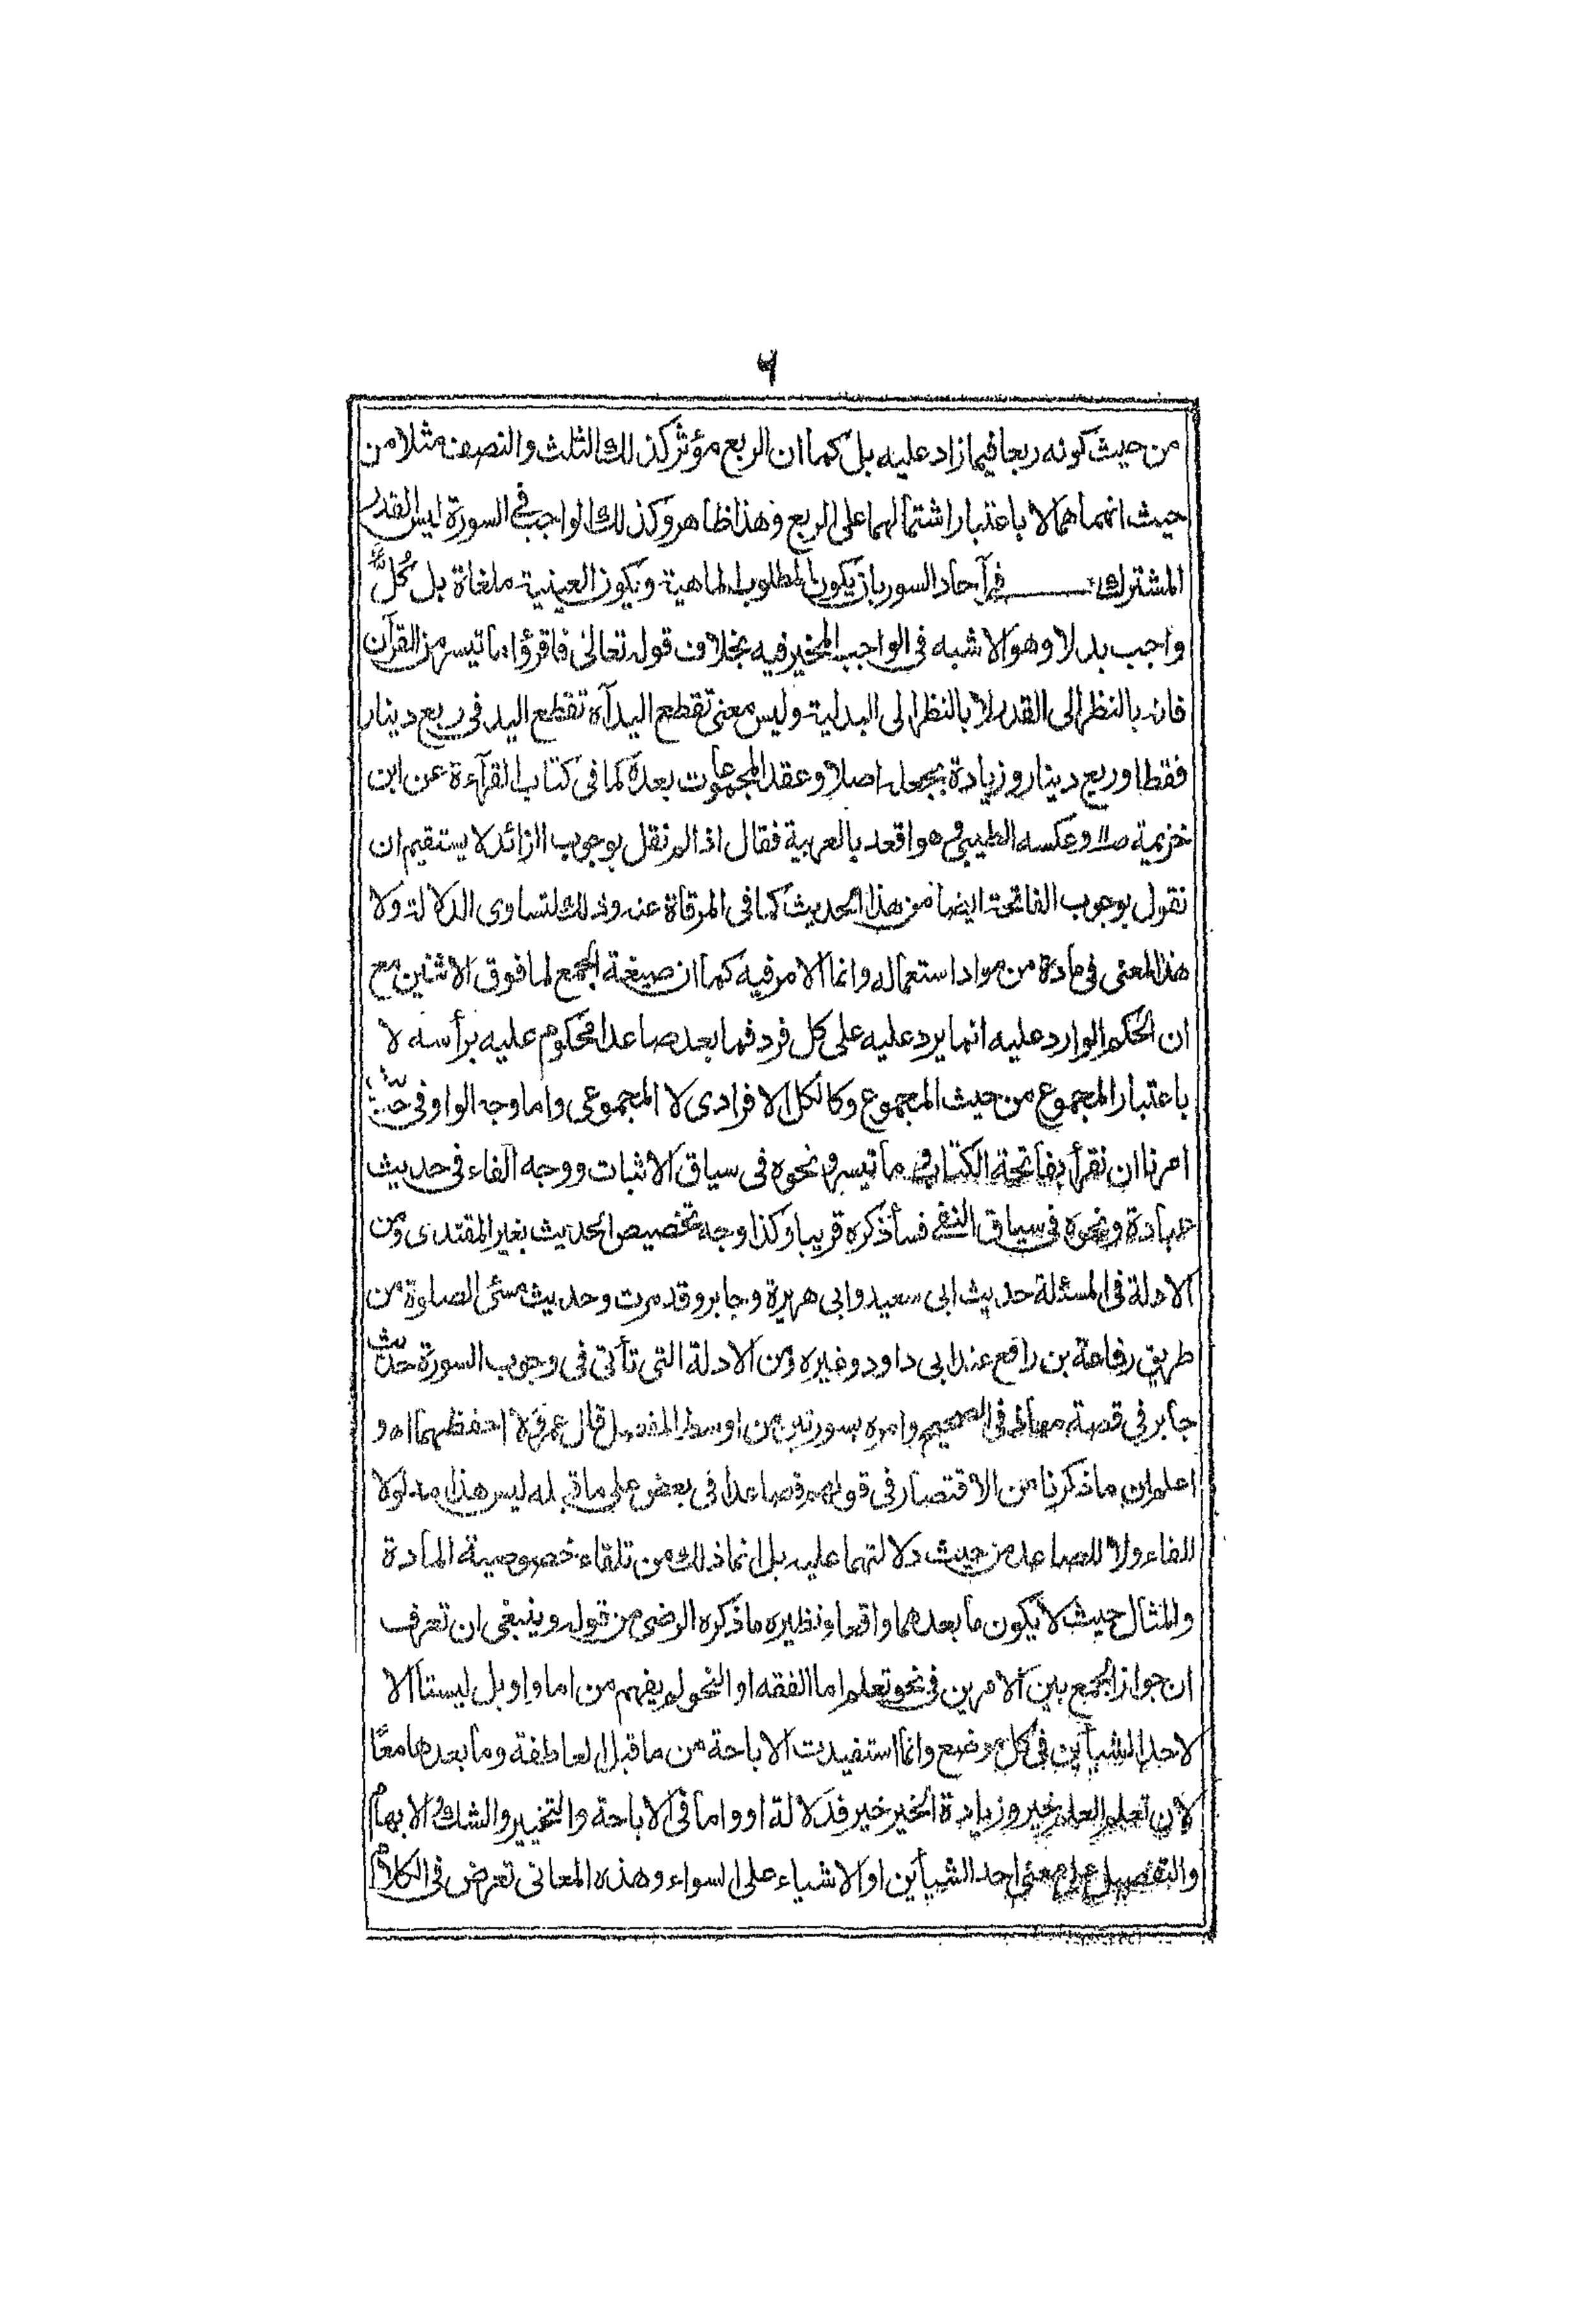 ۶
من حيث كونه ربعا فيما زاد عليه بل كما ان الربع مؤثر كذلك الثلث والنصف مثلا من
حيث انهما هما لا باعتبار اشتمالهما على الربع وهذا ظاهر وكذلك الواجب فى السورة ليس القدر
المشترك فى آحاد السور بان يكون المطلوب الماهية وتكون العينية ملغاة بل كل
واجب بدلا وهو الاشبه فى الواجب المخير فيه بخلاف قوله تعالى فاقرؤا ما تيسر من القرآن
فانه بالنظر الى القدر لا بالنظر الى البدلية وليس معنى تقطع اليد آه تقطع اليد فى ربع دينار
فقط او ربع دينار وزيادة بجعله اصلا وعقد المجموعات بعده كما فى كتاب القرآءة عن ابن
خزيمة وعكسه الطيبى هو اقعد بالعربية فقال اذا لم نقل بوجوب الزائد لا يستقيم ان
نقول بوجوب الفاتحة ايضا من هذا الحديث كما فى المرقاة عنه وذلك لتساوى الدلالة ولا
هذا المعنى فى مادة من مواد استعماله وانما الامر فيه كما ان صيغة الجمع لما فوق الاثنين مع
ان الحكم الوارد عليه انما يرد عليه على كل فرد فما بعد صاعدا محكوم عليه برأسه لا
باعتبار المجموع من حيث المجموع وكالكل الافرادى لا المجموعى واما وجه الواو فى حديث
امرنا ان نقرأ بفاتحة الكتاب وما تيسر ونحوه فى سياق الاثبات ووجه الفاء فى حديث
عبادة ونحوه فى سياق النفى فسأذكره قريبا وكذا وجه تخصيص الحديث بغير المقتدى ومن
الادلة فى المسئلة حديث ابى سعيد وابى هريرة وجابر وقد مرت وحديث مسئ الصلوة من
طريق رفاعة بن رافع عند ابى داود وغيره ومن الادلة التى تأتى فى وجوب السورة حديث
جابر فى قصة معاذ فى الصحيح وامره بسورتين من اوسط المفصل قال عمرو لا احفظهما اه و
اعلم ان ما ذكرنا من الاقتصار فى قولهم فصاعدا فى بعض على ما قبله ليس هذا مدلولا
للفاء ولا للصاعد من حيث دلالتهما عليه بل انما ذلك من تلقاء خصوصية المادة
والمثال حيث لا يكون ما بعدهما واقعا ونظيره ما ذكره الرضى من قوله وينبغى ان تعرف
ان جواز الجمع بين الامرين فى نحو تعلم اما الفقه او النحو لم يفهم من اما واو بل ليستا الا
لاحد الشيأين فى كل موضع وانما استفيدت الاباحة من ما قبل العاطفة وما بعدها معًا
لان تعلم العلم خير وزيادة الخير خير فدلالة او واما فى الاباحة والتخيير والشك والابهام
والتفصيل على معنى احد الشيأين او الاشياء على السواء وهذه المعانى تعرض فى الكلام